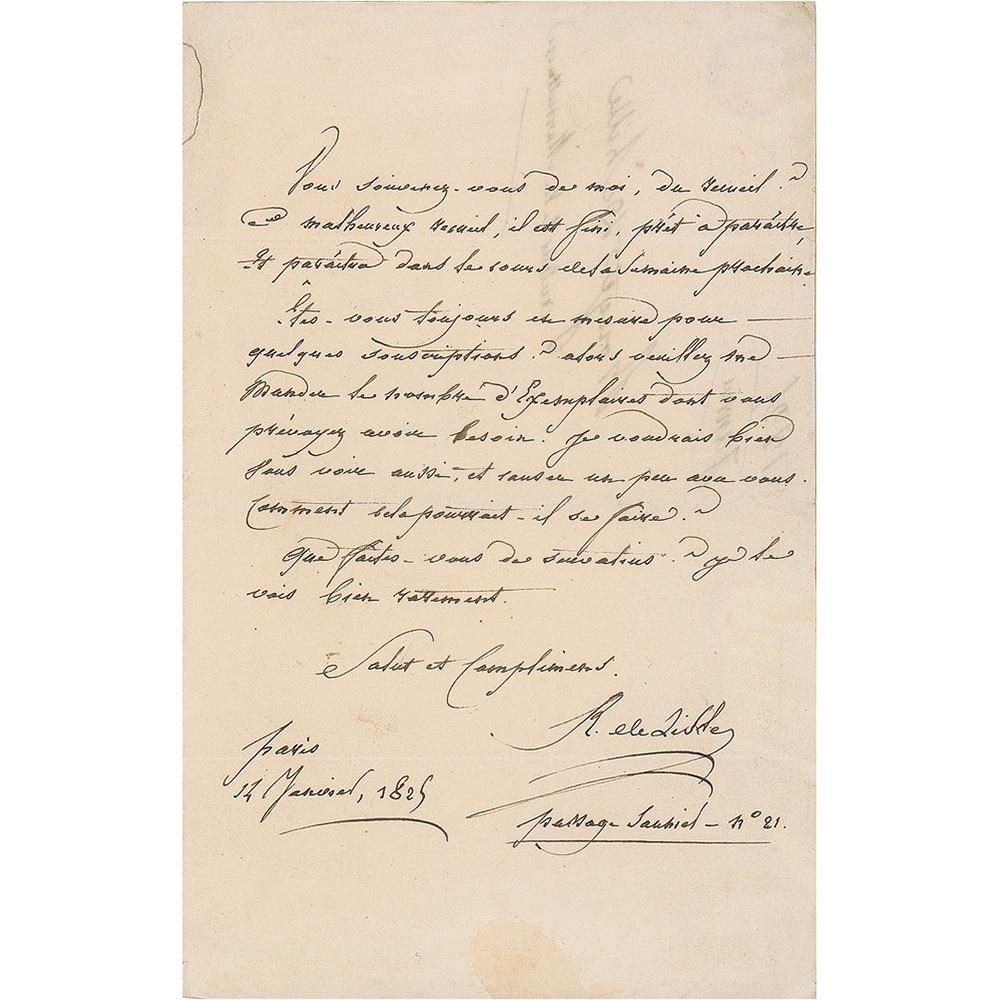 Vous souvenez-vous de moi, du recueil ?
Ce malheureux recueil, il est fini, prêt à paraître,
Et paraîtra dans le cours de la semaine prochaine.
Êtes-vous toujours en mesure pour
quelques souscriptions ? alors veuillez me
Mander le nombre d'Exemplaires dont vous
prévoyez avoir besoin. Je voudrais bien
Vous voir aussi, et causer un peu avec vous.
Comment cela pourrait-il se faire ?
Que faites-vous de ? je le
vois bien rarement.
Salut et Complimens.
R. de Lisle
paris
14 Janvier, 1825
passage Saunier - n° 21.